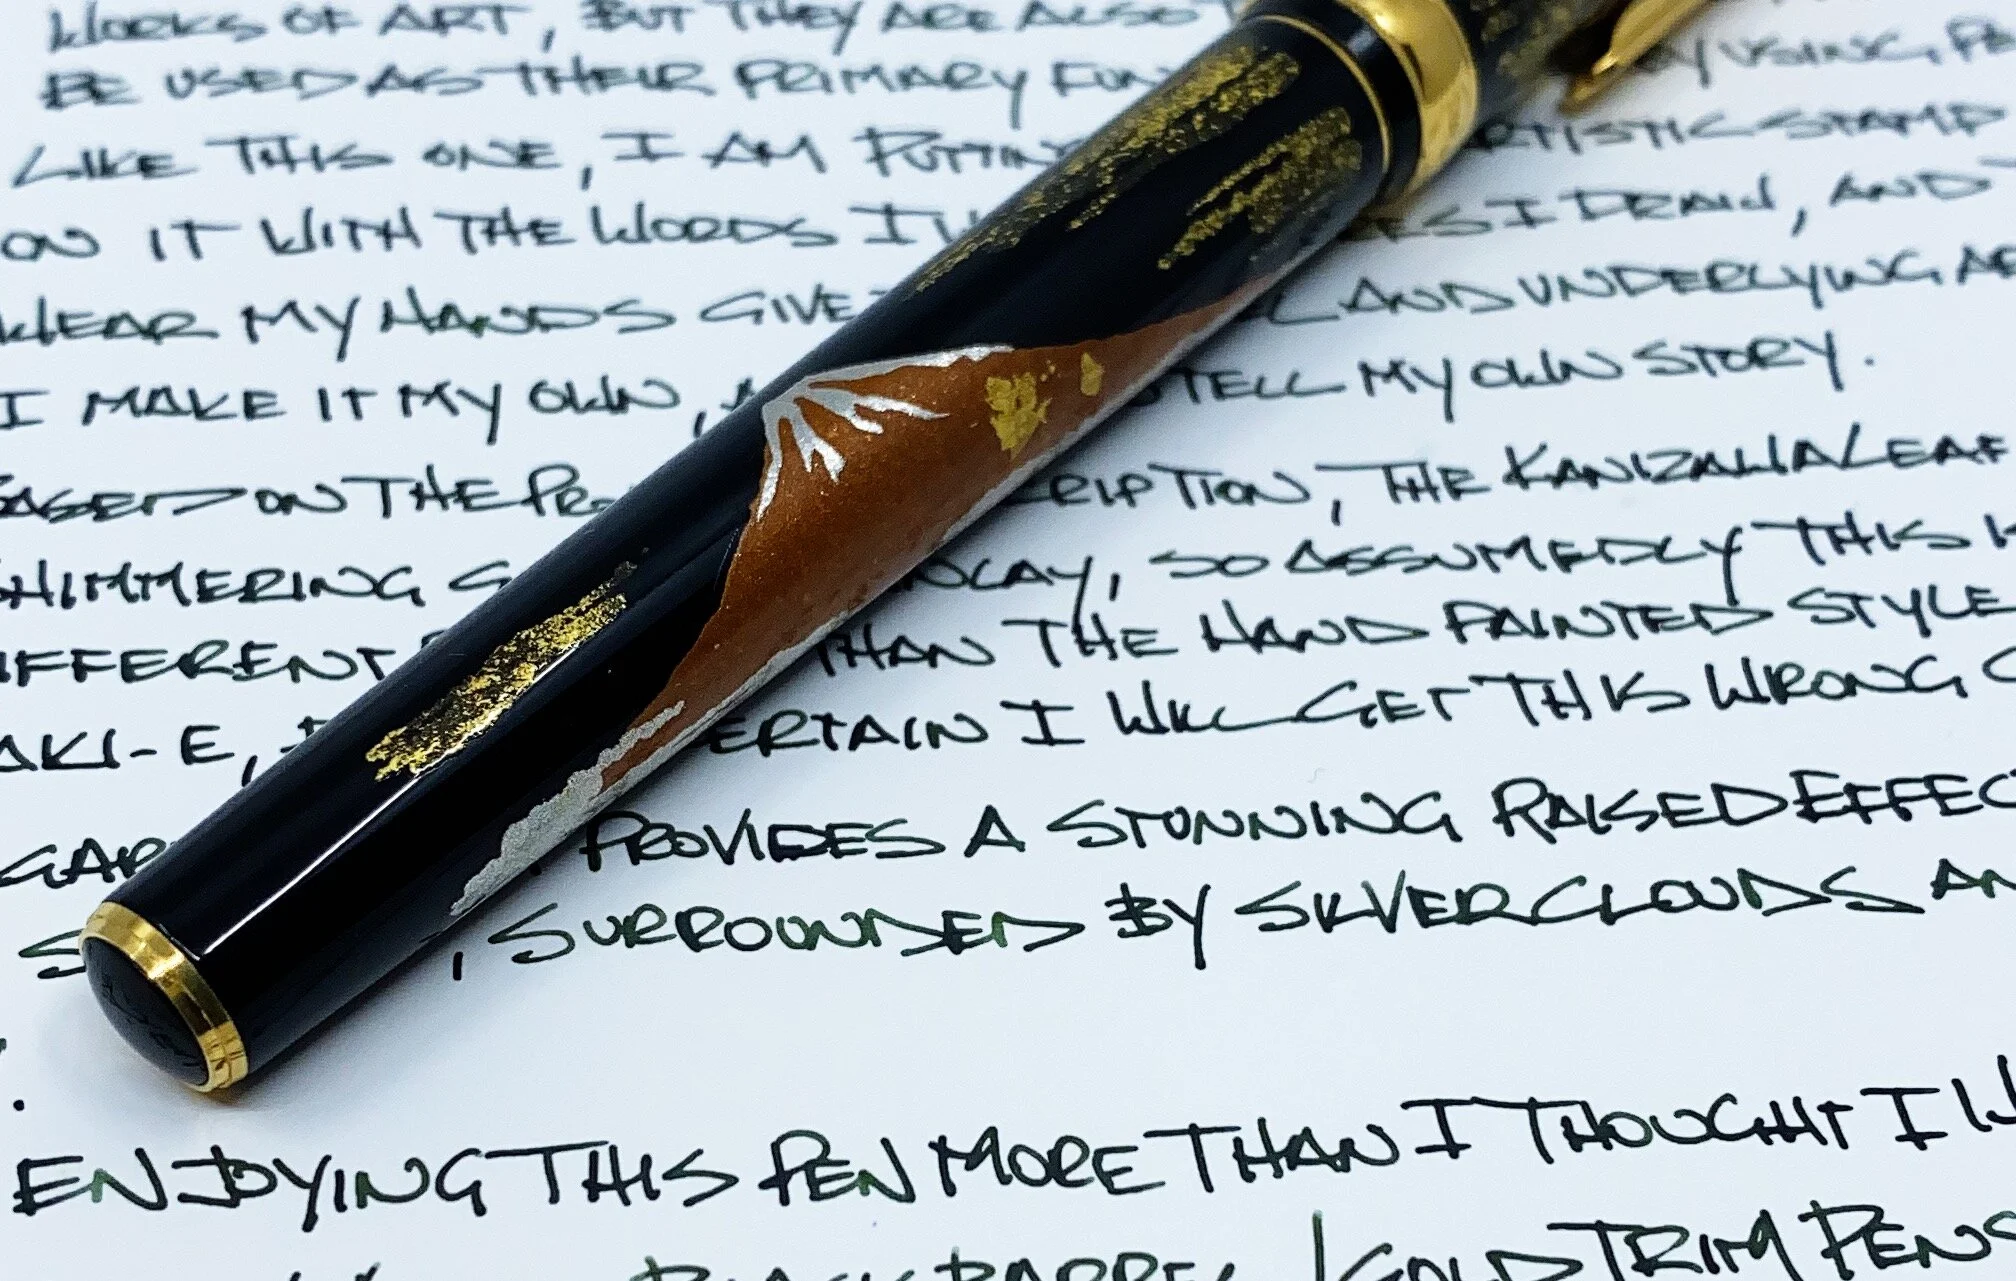 WORKS OF ART, BUT THEY ARE ALSO
BE USED AS THEIR PRIMARY FUN Y USING PE
LIKE THIS ONE, I AM PUTTING RTISTIC STAMP
ON IT WITH THE WORDS I W ES I DRAW, AND
WEAR MY HANDS GIVE L AND UNDERLYING
I MAKE IT MY OWN, TELL MY OWN STORY.
BASED ON THE PRO CRIPTION, THE KANIZAWA LEAF
SHIMMERING INLAY, SO ASSUMEDLY THIS IS
DIFFERENT THAN THE HAND PAINTED STYLE
AKI-E, CERTAIN I WILL GET THIS WRONG
PROVIDES A STUNNING RAISED EFFEC
, SURROUNDED BY SILVER CLOUDS AN
ENJOYING THIS PEN MORE THAN I THOUGHT I
BLACK BARREL / GOLD TRIM PENS